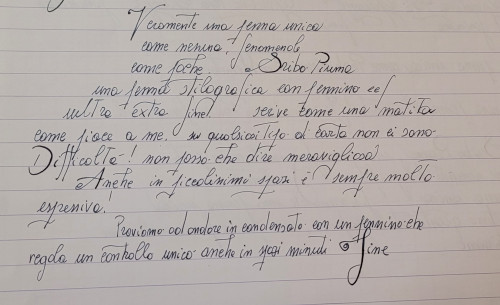 Veramente una penna unica
come nenuna, fenomenale
come poche e Scribo Piuma
una penna stilografica con pennino eef
ultra extra fine! scrive come una matita
come piace a me. su qualsiasi tipo di carta non ci sono
Difficoltà! non posso che dire meravigliosa
Anche in piccolissimi spazi è sempre molto
espressiva!
Proviamo ad andare in condensato con un pennino che
regala un controllo unico anche in spazi minuti fine